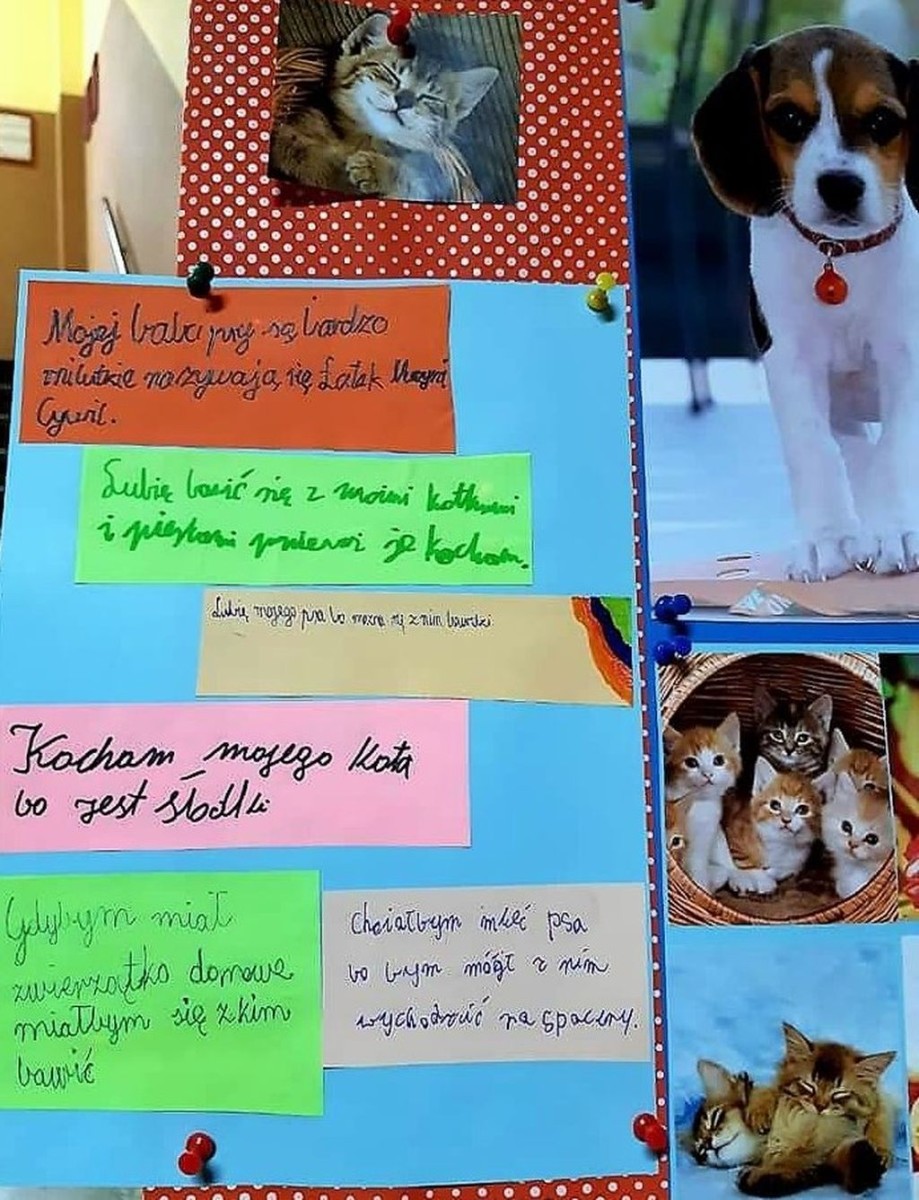 Mojej babci psy są bardzo
milutkie nazywają się Łatek
Cywil.
Lubię bawić się z moimi kotkami
i pieskami ponieważ je kocham.
Lubię mojego psa bo można się z nim bawidzi
Kocham mojego kota
bo jest słodki
Gdybym miał
zwierzątko domowe
miałbym się z kim
bawić
Chciałbym mieć psa
bo bym mógł z nim
wychodzić na spacery.